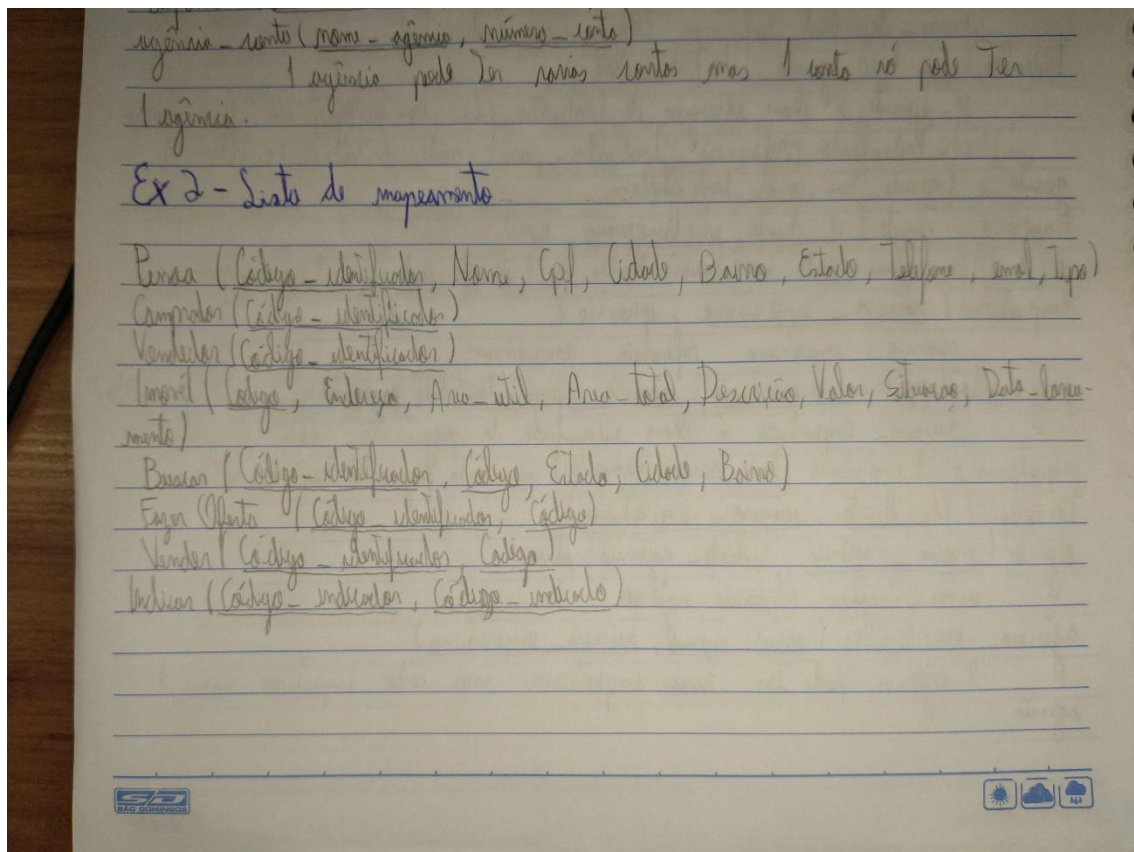 agência_conta (nome_agência, número_conta)
1 agência pode ter varias contas mas 1 conta só pode Ter
1 agência.
Ex 2 - Lista de mapeamento
Pessoa (Código_identificador, Nome, Cpf, Cidade, Bairro, Estado, Telefone, email, Tipo)
Comprador (Código_identificador)
Vendedor (Código_identificador)
Imóvel (Código, Endereço, Area_util, Area_total, Descrição, Valor, Situacao, Data_lanca-
mento)
Buscar (Código_identificador, Código, Estado, Cidade, Bairro)
Fazer Oferta (Código_identificador, Código)
Vender (Código_identificador, Código)
Indicar (Código_indicador, Código_indicado)
SD
SÃO DOMINGOS